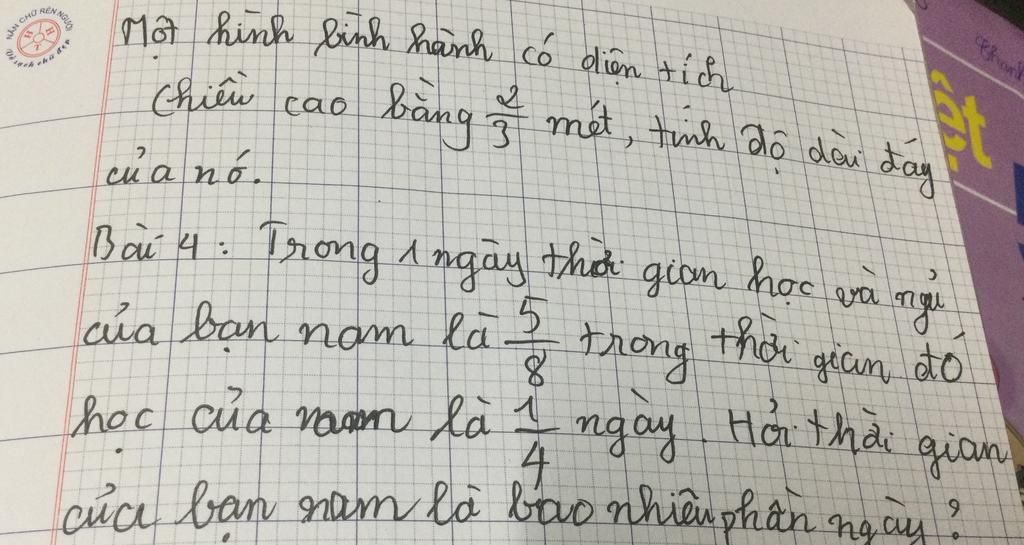 NẮN CHỮ RÈN NGƯỜI
Một hình bình hành có diện tích
chiều cao bằng 2/3 mét, tính độ dài đáy
của nó.
Bài 4: Trong 1 ngày thời gian học và ngủ
của bạn nam là 5/8 trong thời gian đó
học của nam là 1/4 ngày. Hỏi thời gian
của bạn nam là bao nhiêu phần ngày?
ệt